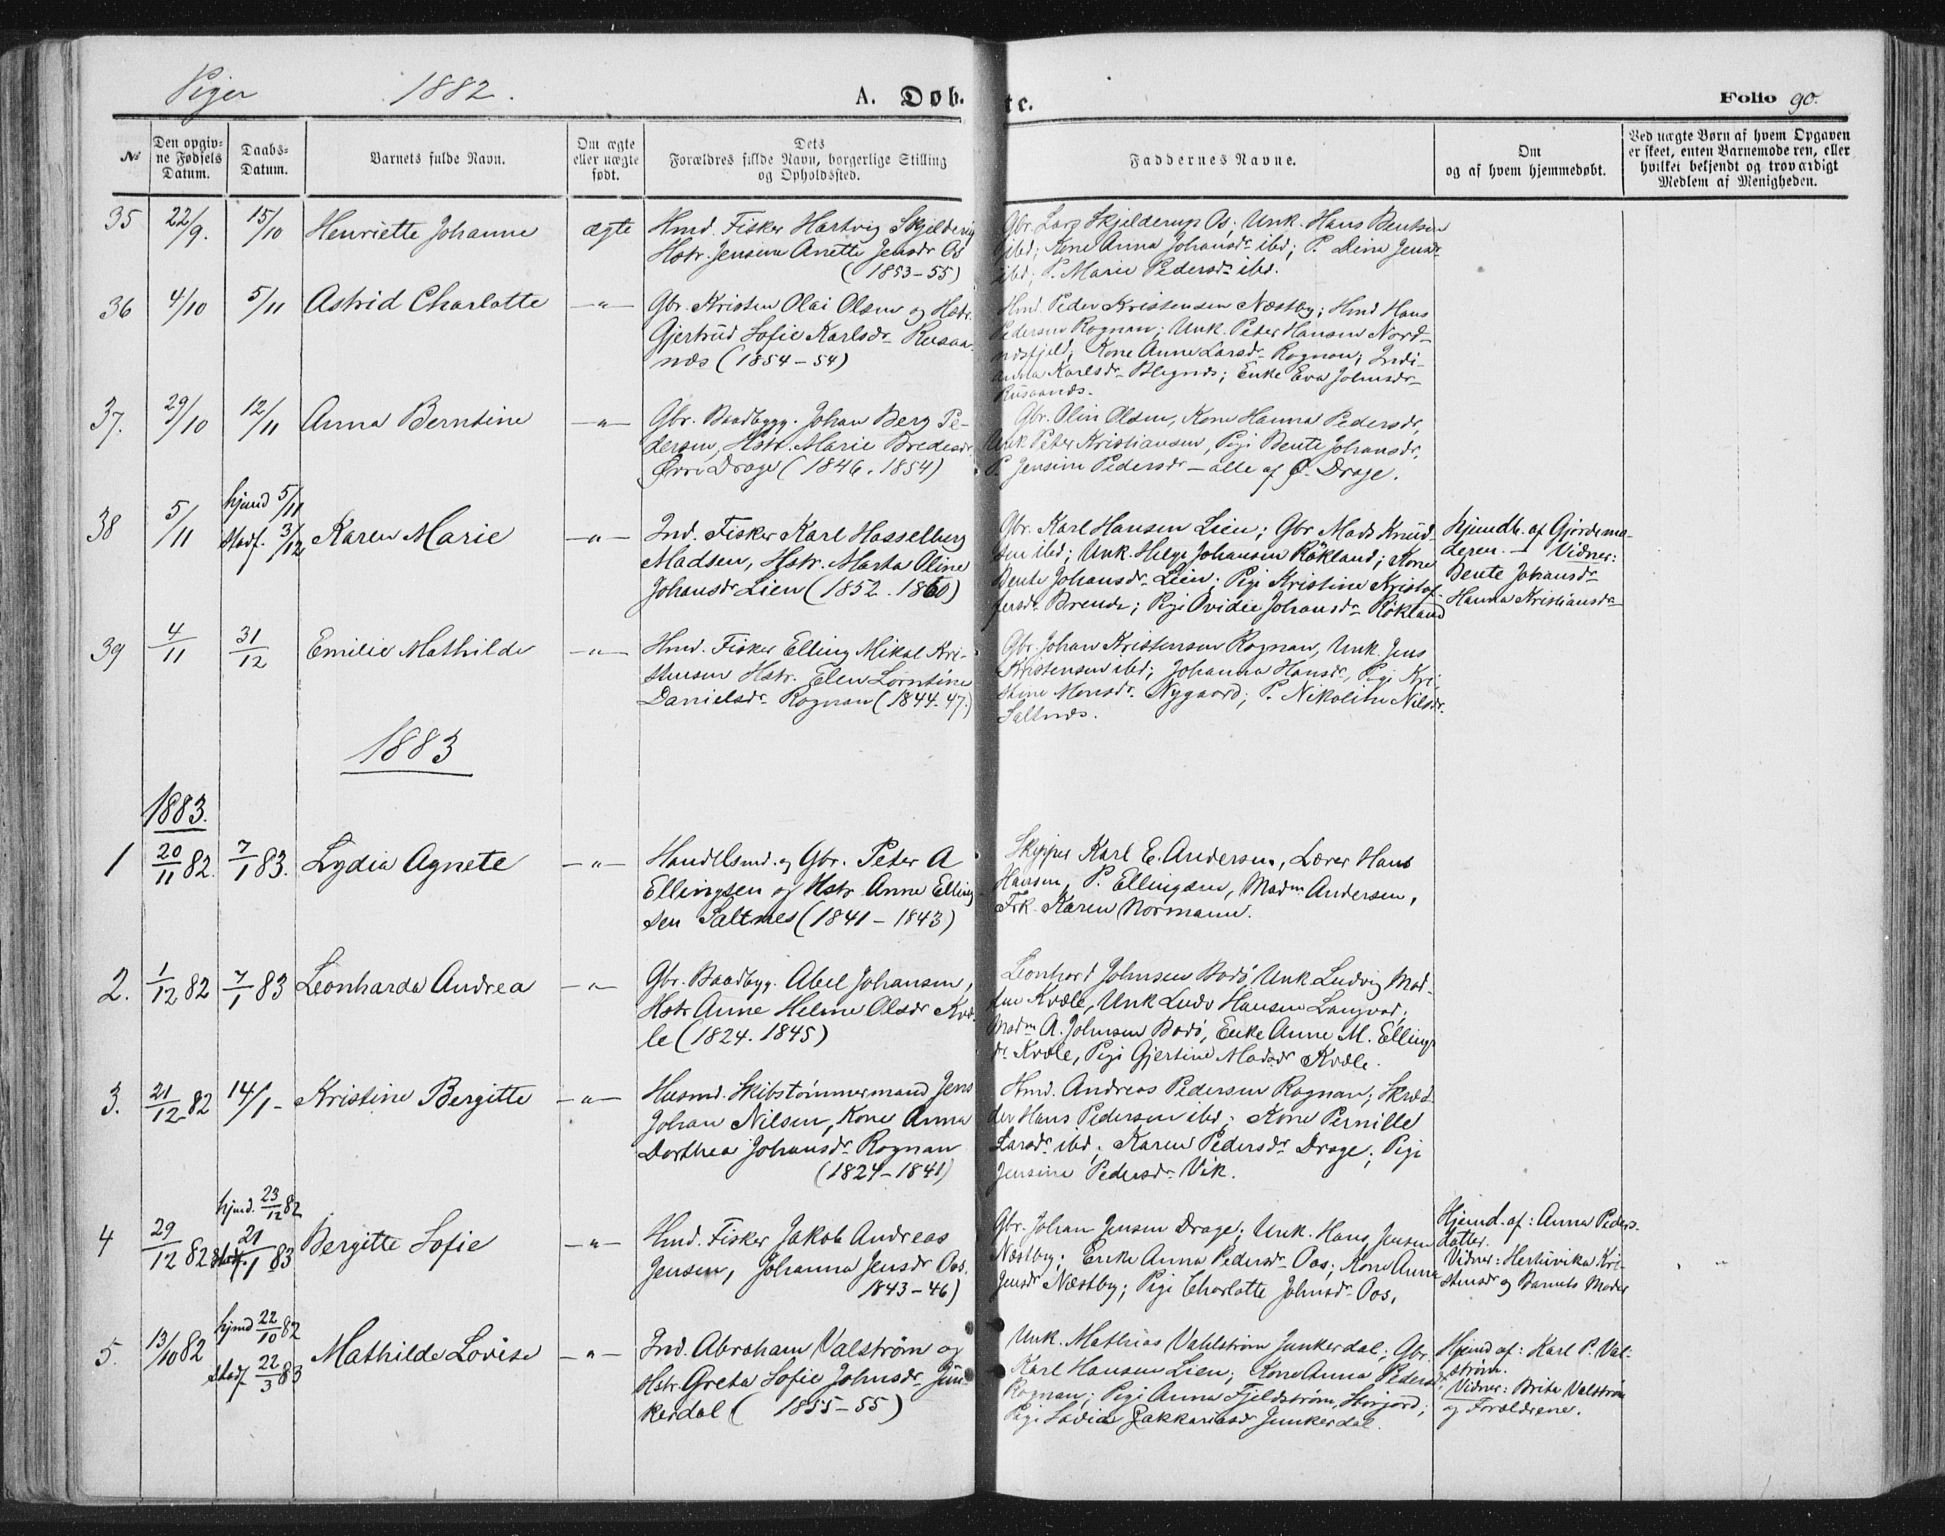 Piger 1882. A. Døb- te. Folio 90.
№
Den opgiv-
ne Fødsels
Datum.
Daabs-
Datum.
Barnets fulde Navn.
Om ægte
eller uægte
født.
Dets
Forældres fulde Navn, borgerlige Stilling
og Opholdssted.
Faddernes Navne.
Om
og af hvem hjemmedøbt.
Ved uægte Børn af hvem Opgaven
er skeet, enten Barnemoderen, eller
hvilket bekjendt og troværdigt
Medlem af Menigheden.
35 22/9. 15/10 Henriette Johanne ægte
Hmd. Fisker Hartvig Skjelderup
Hstr. Jensine Anette Jensdr Os
(1853-55)
Gbr. Lars Skjelderup Os; Unk. Hans Bentsen
ibd; Kone Anna Johansdr ibd; P. Dina Jensdr
ibd; P. Marie Pedersdr ibd.
36 4/10 5/11 Astrid Charlotte -"-
Gbr. Kristen Olai Olsen og Hstr.
Gjertrud Sofie Karlsdr Rusaa-
næs (1854-54)
Hmd. Peder Kristensen Næstby; Hmd Hans
Pedersen Rognan; Unk. Peter Hansen Nord-
næsfjeld; Kone Anne Larsdr Rognan; Indi-
anna Karlsdr; Enke Eva Johnsdr
Rusaanæs.
37. 29/10 12/11 Anna Berntine -"-
Gbr. Baadbygg. Johan Berg Pe-
dersen, Hstr. Marie Bredesdr
Drage (1846. 1854)
Gbr. Olin Olsen, Kone Hanna Pedersdr,
Unk. Peter Kristiansen, Pige Bente Johansdr,
P. Jensine Pedersdr - alle af Ø. Drage.
38 5/11 hjmd 5/11
Stadf. 3/12 Karen Marie -"-
Ind. Fisker Karl Hasselberg
Madsen, Hstr. Marta Oline
Johansdr Lien (1852. 1860)
Gbr. Karl Hansen Lien; Gbr Mads Knud-
sen ibd; Unk. Helge Johansen Røkland; Kone
Bente Johansdr Lien; Pige Kristine Kristof-
fersdr Brende; Pige Ovidie Johansdr Røkland
Hjemdb. af Gjordemo-
deren. - Vidner:
Bente Johansdr
Hanna Kristiansdr
39 4/11 31/12 Emilie Mathilde -"-
Hmd. Fisker Elling Mikal Kri-
stensen Hstr. Elen Lorntine
Danielsdr Rognan (1844-47.)
Gbr. Johan Kristensen Rognan, Unk. Jens
Kristensen ibd; Johanna Hansdr, Pige Kri-
stine Monsdr Nygaard; P. Nikoline Nilsdr
Saltnæs.
1883
1883.
1 20/11 82. 7/1 83. Lydia Agnete -"-
Handelsmd. og Gbr. Peter A
Ellingsen og Hstr Anne Elling
sen Saltnes (1841-1843)
Skipper Karl E. Andersen, Lærer Hans
Hansen, P. Ellingsen, Madm Andersen,
Frk. Karen Normann.
2. 1/12 82 7/1 83 Leonharda Andrea -"-
Gbr. Baadbyg. Abel Johansen,
Hstr Anne Helene Olsdr Kvæ-
le (1824. 1845)
Leonhard Johnsen Bodø, Unk Ludvig Mad-
sen Kvæle, Unk Ludv Hansen Langvad,
Madm A. Johnsen Bodø, Enke Anne M. Ellings
dr Kvæle, Pige Gjertine Madsdr Kvæle.
3. 21/12 82 14/1 - Kristine Bergitte -"-
Husmd. Skibstømmermand Jens
Johan Nilsen, Kone Anna
Dorthea Johansdr Rognan
(1824-1841)
Hmd. Andreas Pedersen Rognan; Skræd-
der Hans Pedersen ibd; Kone Pernille
Larsdr ibd; Karen Pedersdr Drage; Pige
Jensine Pedersdr Vik.
4 29/12 82 hjmd. 23/12 82
Stadf. 21/1 83 Bergitte Sofie -"-
Hmd. Fisker Jakob Andreas
Jensen, Johanna Jensdr Oos.
1843-46)
Gbr. Johan Jensen Drage; Unk. Hans Jensen
Næstby; Enke Anna Pedersdr Oos; Kone Anna
Jensdr Næstby; Pige Charlotte Johnsdr Oos,
Hjemd. af: Anna Peders-
datter.
Vidner: Hertuvika Kri-
stensdr og Barnets Moder
5. 13/10 82 hjmd 22/10 82
Stadf 22/3 83 Mathilde Lovise -"-
Ind. Abraham Valstrøm og
Hstr. Greta Sofie Johnsdr Jun-
kerdal (1855-55)
Unk. Mathias Vahlstrøm Junkerdal; Gbr.
Karl Hansen Lien; Kone Anna Pedersdr
Rognan; Pige Anna Fjeldstrøm, Storjord;
Pige Lovisa Zakkariasdr Junkerdal.
Hjemd af: Karl P. Val-
strøm.
Vidner: Brita Valstrøm
og Forældrene.